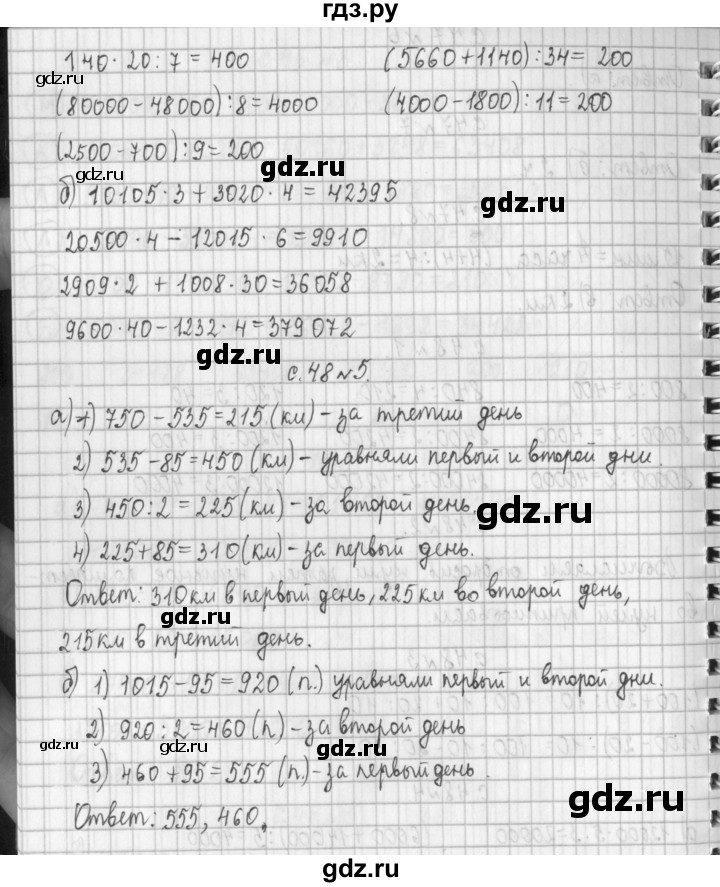 гдз.ру
140 · 20 : 7 = 400 (5660+1140) : 34 = 200
(80000 - 48000) : 8 = 4000 (4000 - 1800) : 11 = 200
(2500 - 700) : 9 = 200
gdz.ru
gdz.ru
б) 10105 · 3 + 3020 · 4 = 42395
gdz.ru
20500 · 4 - 12015 · 6 = 9910
2909 · 2 + 1008 · 30 = 36058
9600 · 40 - 1232 · 4 = 379072
gdz.ru
с. 48 №5.
а) 1) 750 - 535 = 215 (км) - за третий день
2) 535 - 85 = 450 (км) - уравняли первый и второй дни.
3) 450 : 2 = 225 (км) - за второй день.
gdz.ru
4) 225 + 85 = 310 (км) - за первый день.
Ответ: 310 км в первый день, 225 км во второй день,
215 км в третий день.
б) 1) 1015 - 95 = 920 (п.) уравняли первый и второй дни.
2) 920 : 2 = 460 (п) - за второй день
gdz.ru
gdz.ru
3) 460 + 95 = 555 (п.) - за первый день.
gdz.ru
Ответ: 555, 460.
gdz.ru